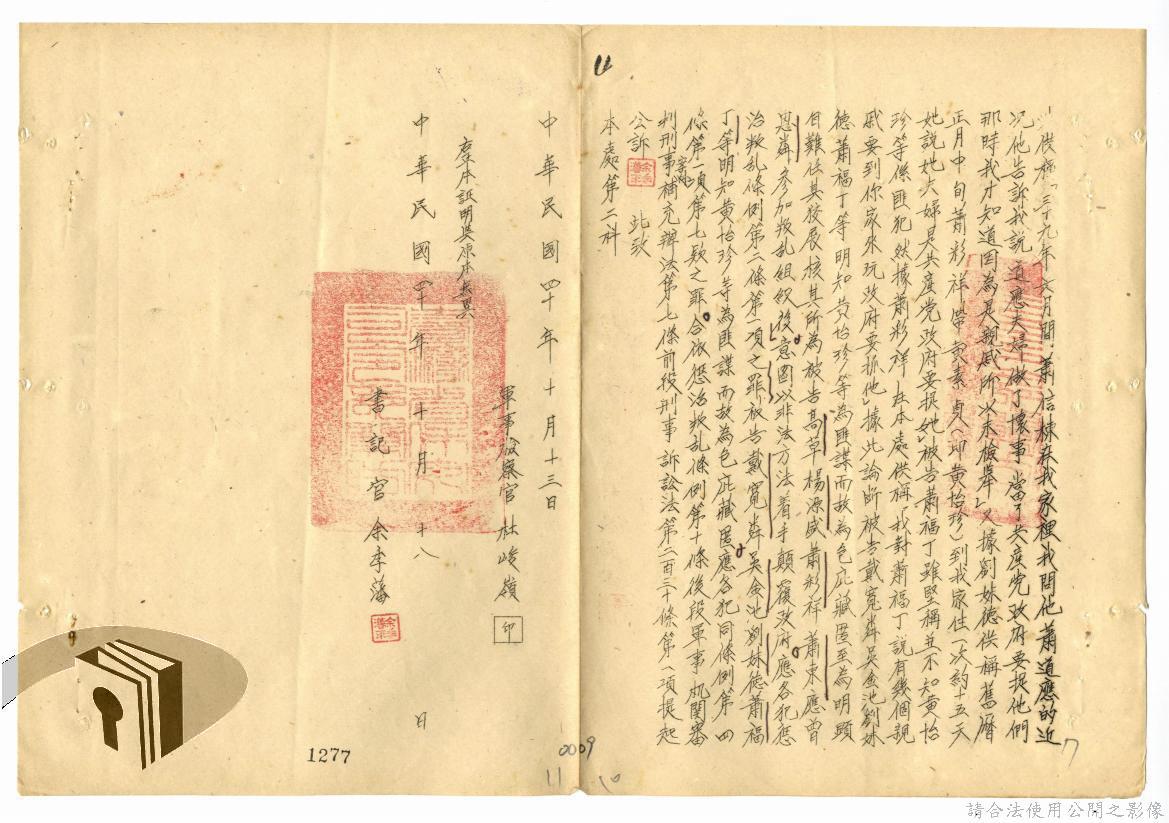 供稱「三十九年六月間蕭信棟在我家裡我問他蕭道應的近
況他告訴我說道應夫婦做了壞事當了共產党政府要捉他們
那時我才知道因為是親戚所以未檢舉」又據劉妹德供稱舊曆
正月中旬蕭彩祥帶 素貞(即黃怡珍)到我家住一次約十五天
她說她夫婦是共產党政府要捉她」被告蕭福丁雖堅稱並不知黃怡
珍等係匪犯然據蕭彩祥在本處供稱「我對蕭福丁說有幾個親
戚要到你家來玩政府要抓他」據此論斷被告戴寬 吳金池劉妹
德蕭福丁等明知黃怡珍等為匪諜而故為包庇藏匿至為明顯
自難任其狡展核其所為被告高草楊源盛蕭彩祥蕭東應曾
恩 參加叛乱組織後意圖以非法方法着手顛覆政府應各犯懲
治叛乱條例第二條第一項之罪被告戴寬 吳金池劉妹德蕭福
丁等明知黃怡珍等為匪諜而故為包庇藏匿應各犯同條例第四
條第一項第七款之罪合依懲治叛乱條例第十條後段軍事机関審
判刑事案件補充辦法第七條前段刑事訴訟法第二百三十條第一項提起
公訴 此致
本處第二科
中華民國四十年十月十三日
軍事檢察官 杜峻嶺 印
本証明與原本無異
中華民國四十年十月十八日
書記官 余李藩
7
11
0009
11
10
1277
請合法使用公開之影像